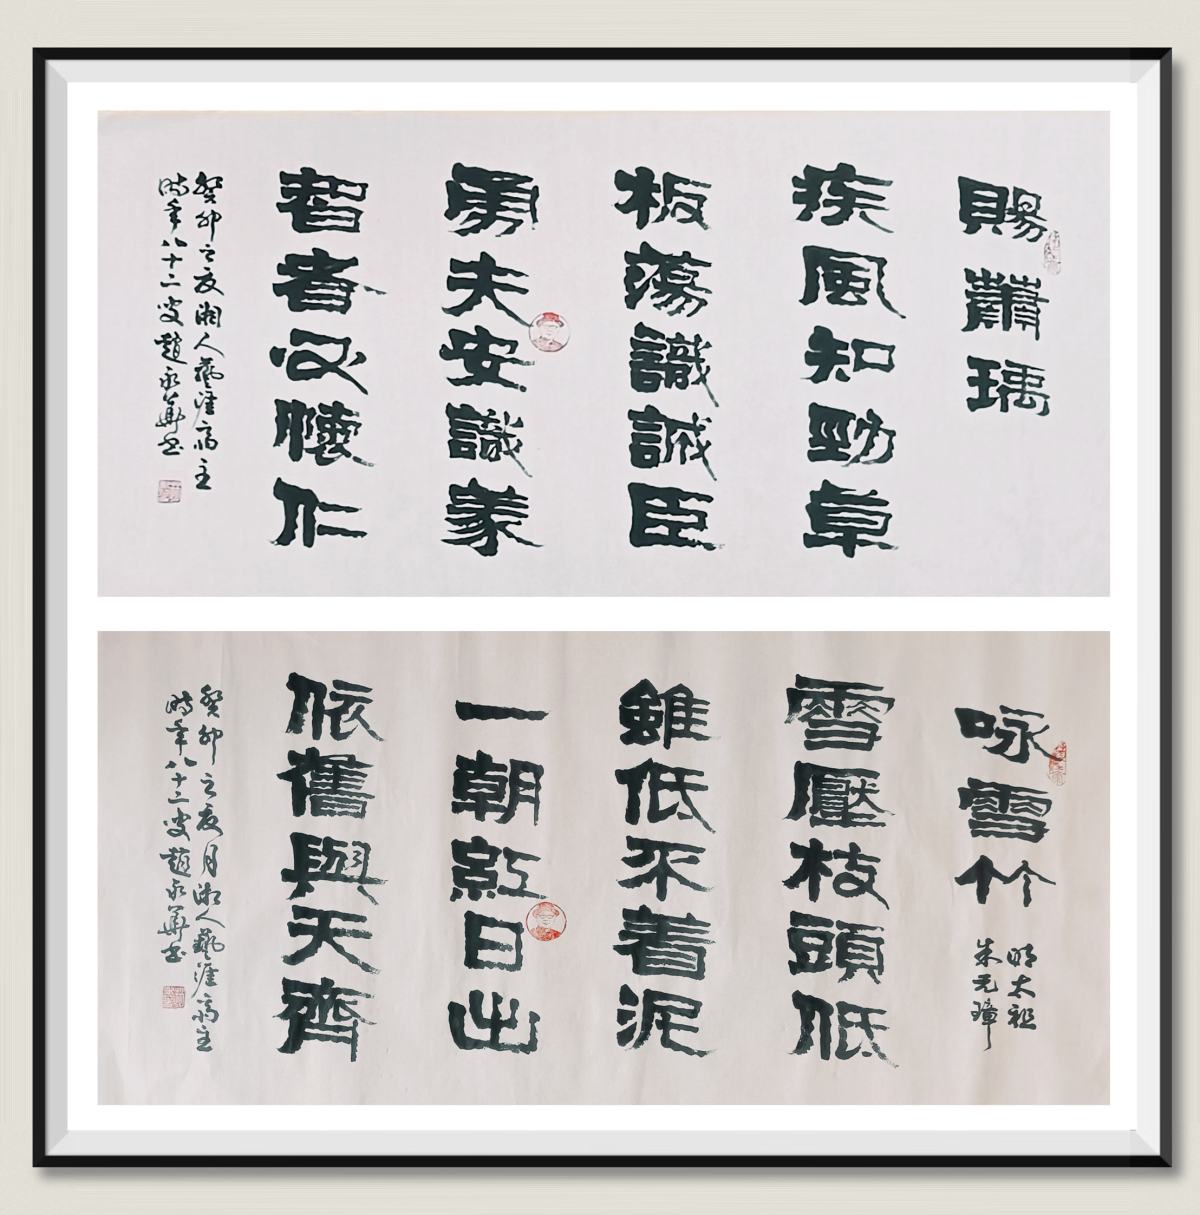 賜蕭瑀
疾風知勁草
板蕩識誠臣
勇夫安識義
智者必懷仁
癸卯之夏湘人藝涯齋主
時年八十二叟趙永華書
咏雪竹
明太祖
朱元璋
雪壓枝頭低
雖低不着泥
一朝紅日出
依舊與天齊
癸卯之夏月湘人藝涯齋主
時年八十二叟趙永華書